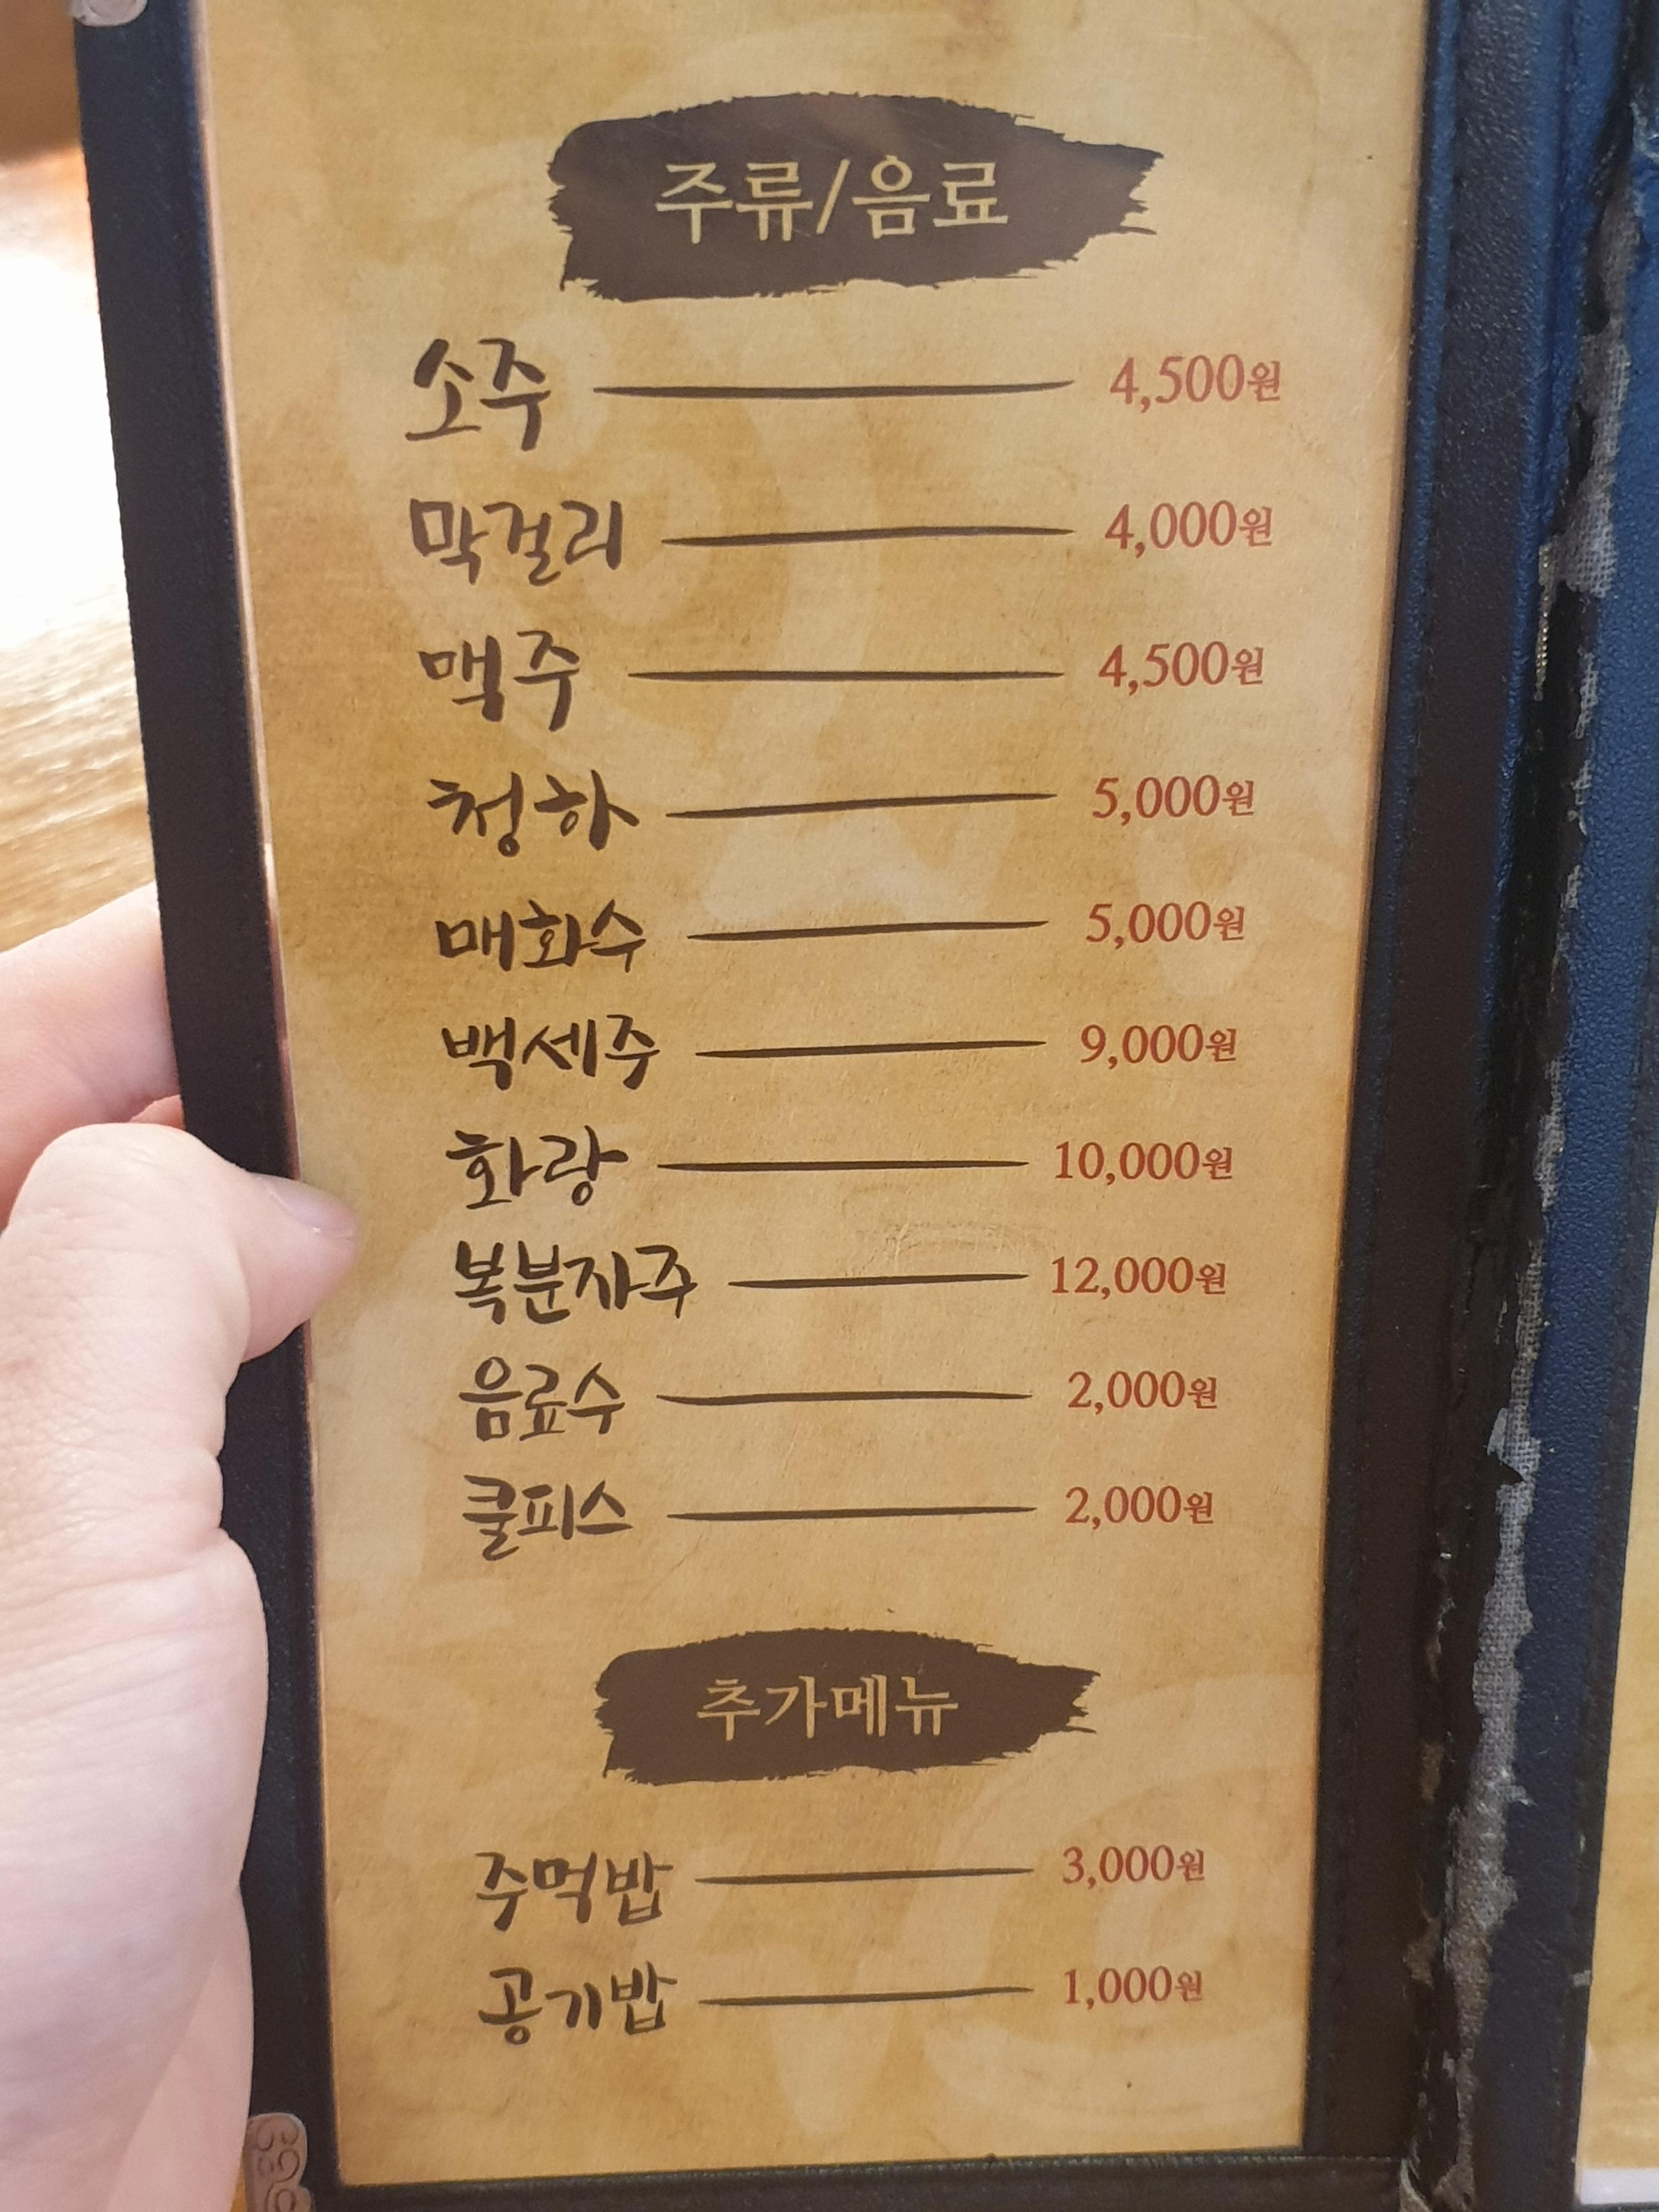 주류/음료
소주 4,500원
막걸리 4,000원
맥주 4,500원
청하 5,000원
매화수 5,000원
백세주 9,000원
화랑 10,000원
복분자주 12,000원
음료수 2,000원
쿨피스 2,000원
추가메뉴
주먹밥 3,000원
공기밥 1,000원